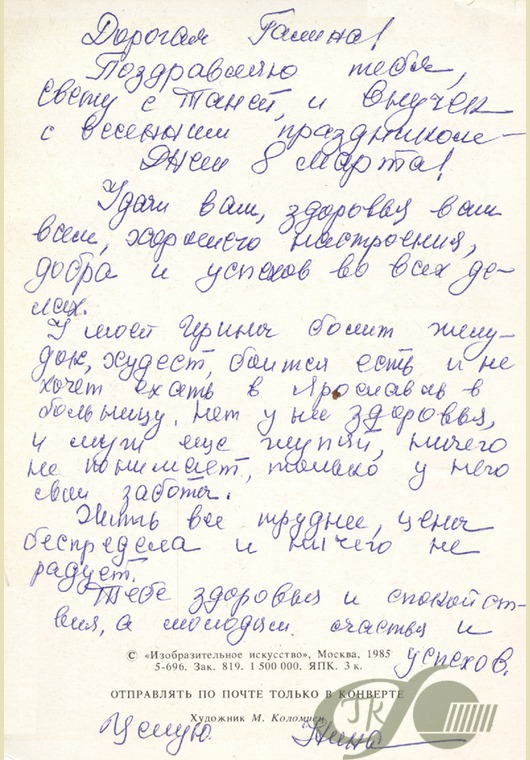 Дорогая Галина!
Поздравляю тебя,
Свету с Таней, и внучек
с весенним праздником –
Днем 8 марта!
Удачи вам, здоровья вам
всем, хорошего настроения,
добра и успехов во всех де-
лах.
У моей Ирины болит желу-
док, худеет, боится есть и не
хочет ехать в Ярославль в
больницу. Нет у ней здоровья,
и муж еще глупый, ничего
не понимает, только у него
свои заботы.
Жить все труднее, цены
беспредела и ничего не
радует.
Тебе здоровья и спокойст-
вия, а молодым счастья и
успехов.
© «Изобразительное искусство», Москва, 1985
5-696. Зак. 819. 1 500 000. ЯПК. 3 к.
ОТПРАВЛЯТЬ ПО ПОЧТЕ ТОЛЬКО В КОНВЕРТЕ
Художник М. Коломиец
Целую Нина
ГК